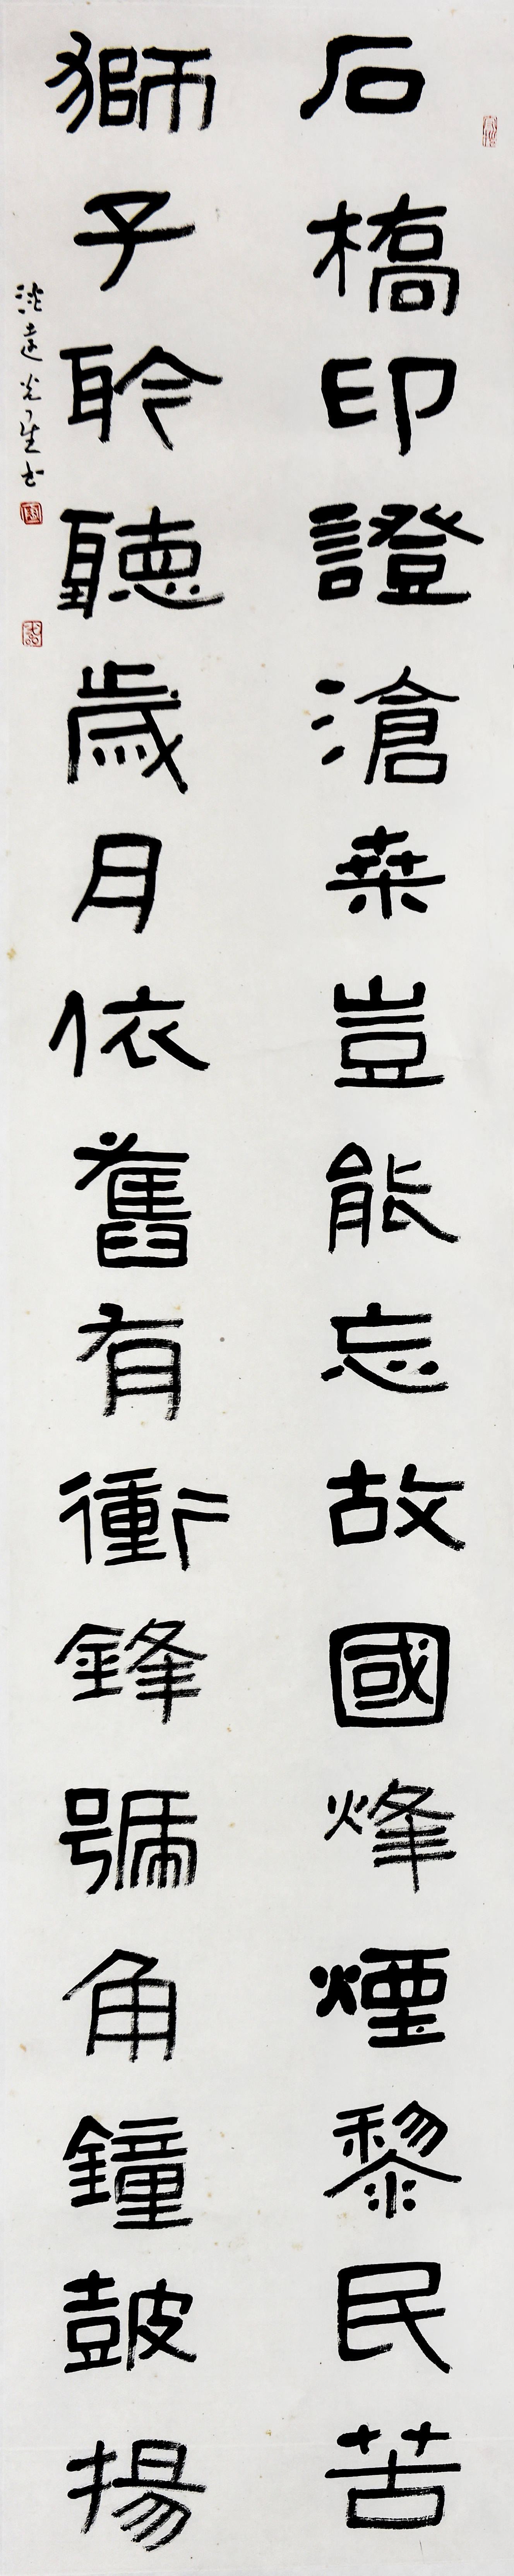 石橋印證滄桑豈能忘故國烽煙黎民苦
獅子聆聽歲月依舊有衝鋒號角鐘皷揚